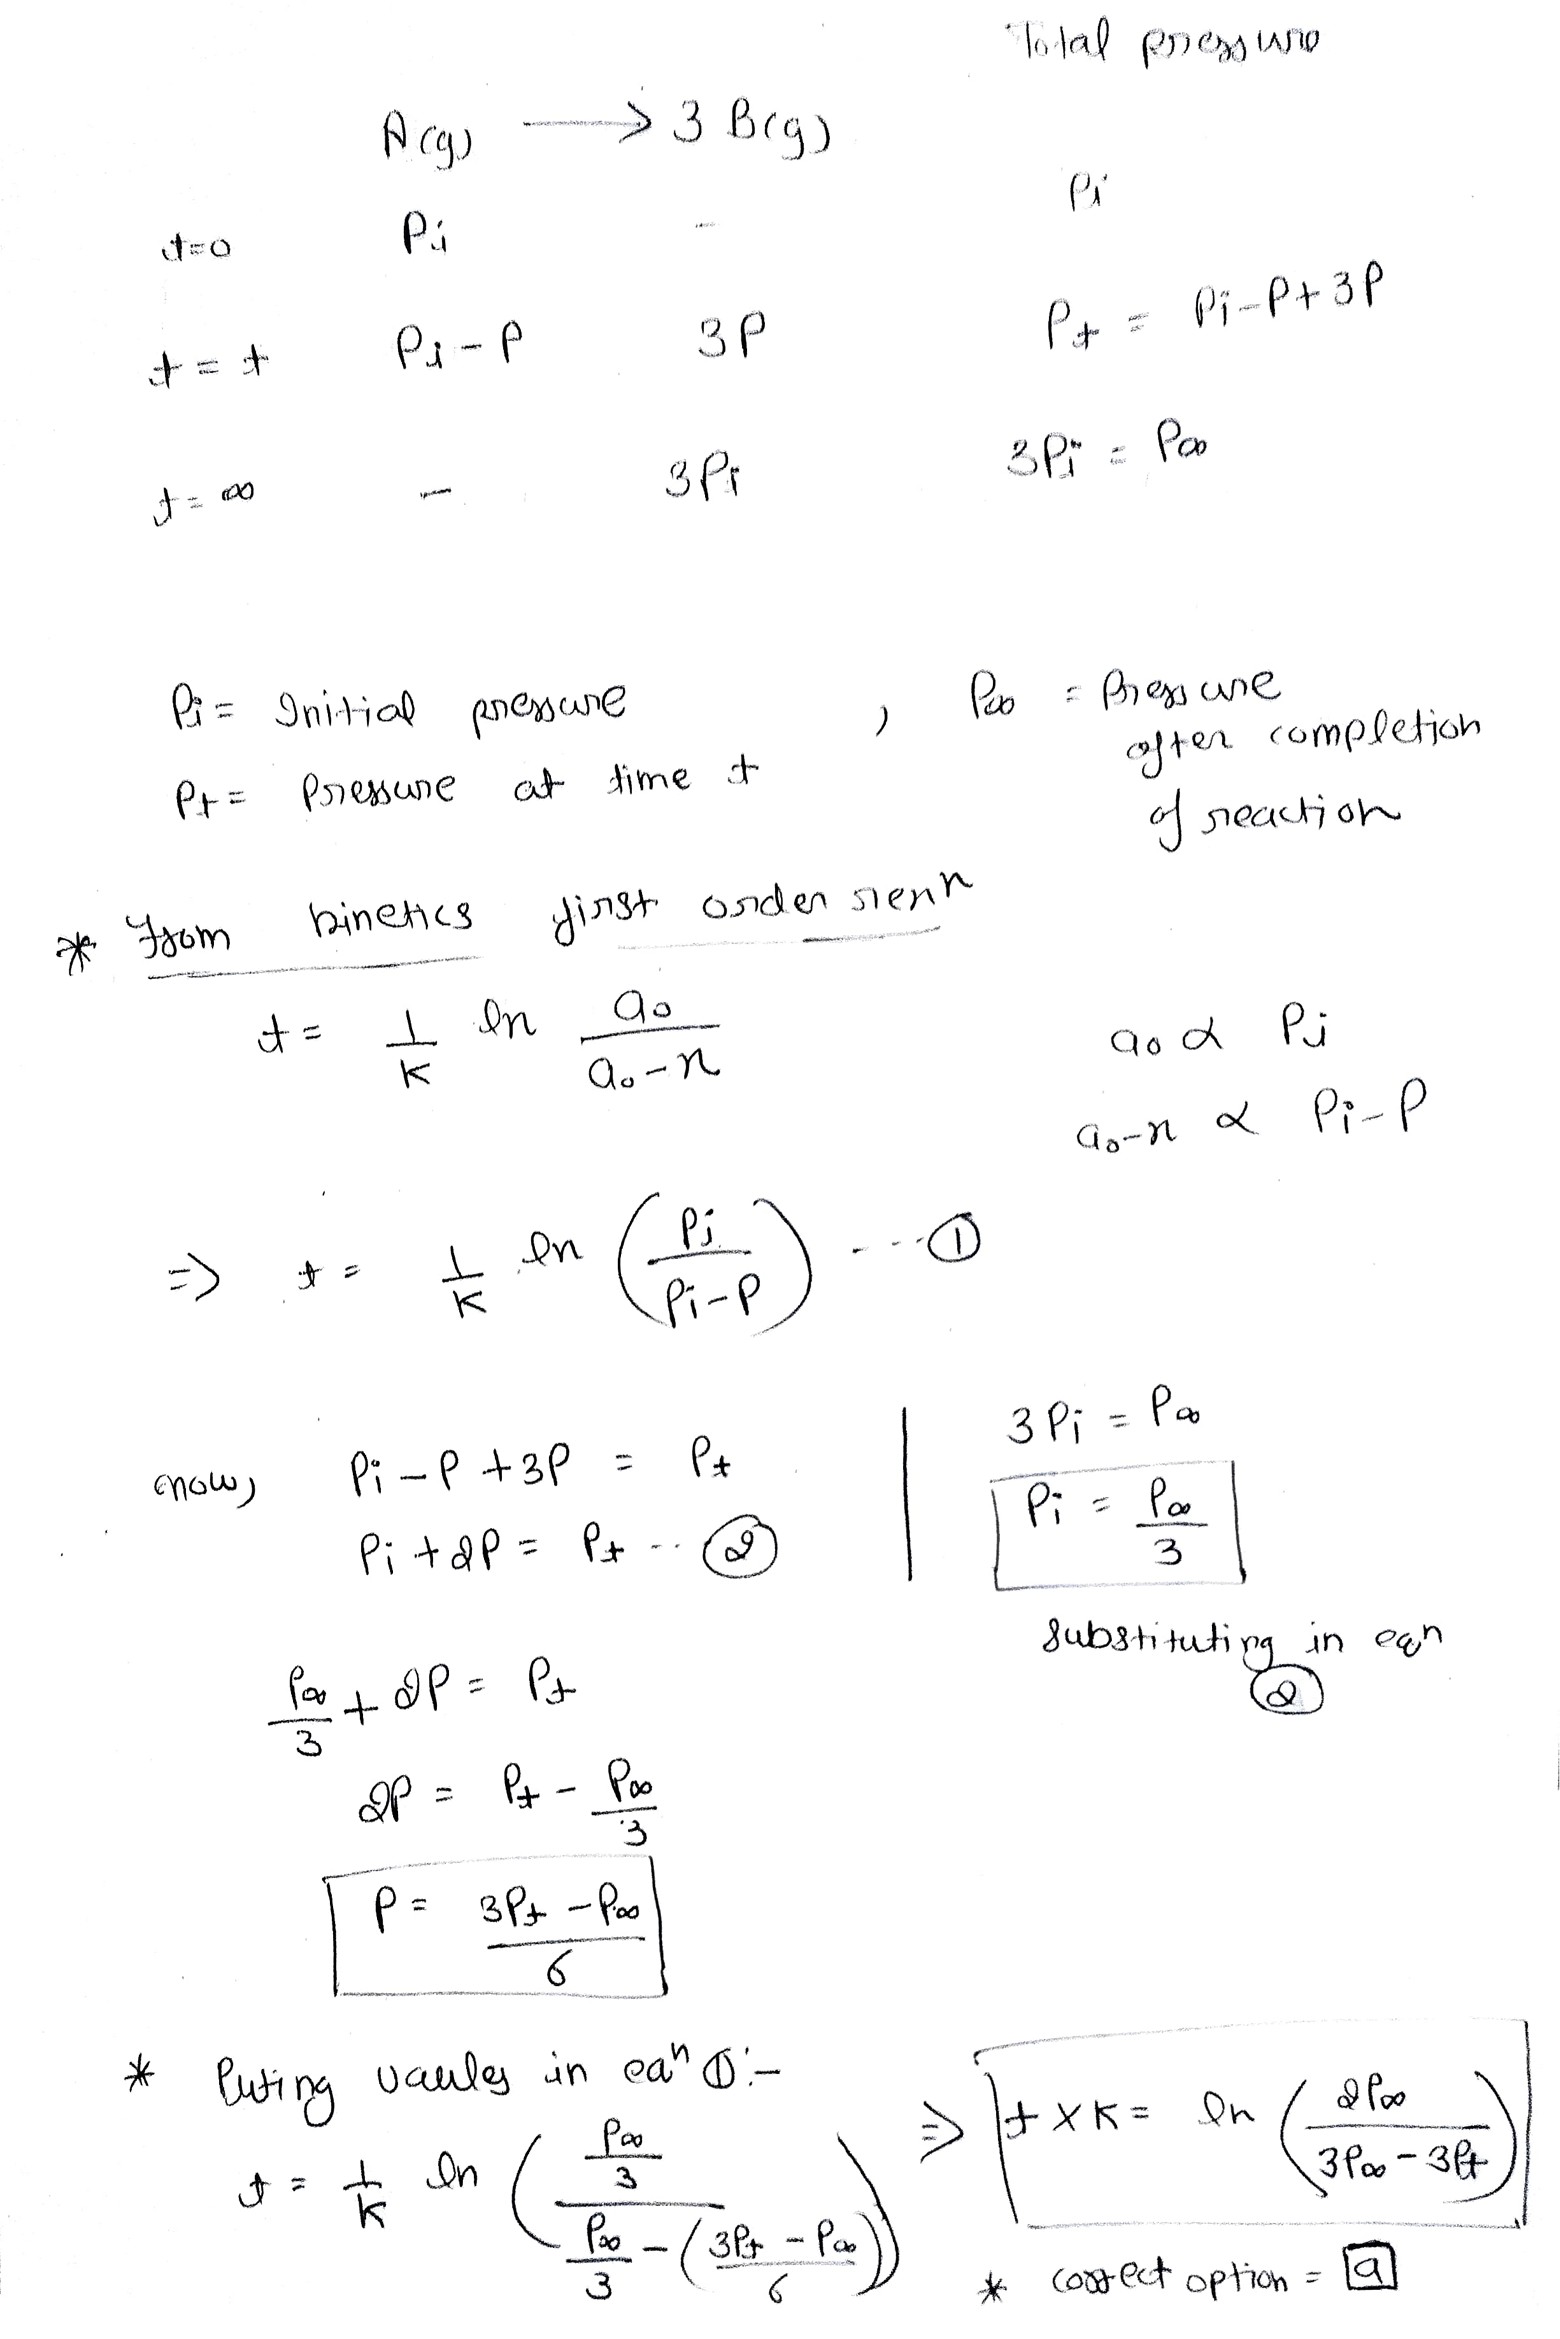 Total pressure
A(g) → 3 B(g)
t=0 Pi - Pi
t = t Pi - P 3P Pt = Pi-P+3P
t = ∞ - 3Pi 3Pi = P∞
Pi = Initial pressure , P∞ = Pressure
after completion
Pt = Pressure at time t
of reaction
* From kinetics first order rexn
t = 1/K ln a0/(a0-x) a0 α Pi
a0-x α Pi-P
=> t = 1/K ln (Pi/(Pi-P)) ---- ①
now, Pi - P + 3P = Pt 3Pi = P∞
Pi + 2P = Pt -- ② Pi = P∞/3
substituting in eqn
②
P∞/3 + 2P = Pt
2P = Pt - P∞/3
P = (3Pt - P∞)/6
* Puting vaules in eqn ① :-
t = 1/K ln ((P∞/3)/(P∞/3 - (3Pt - P∞)/6)) => t x K = ln (2P∞/(3P∞ - 3Pt))
* correct option = a